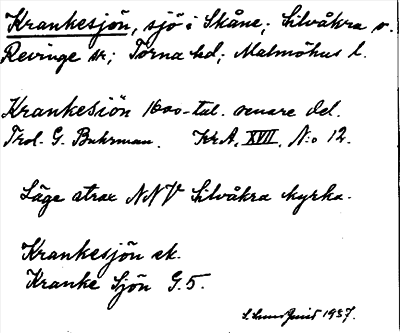 Krankesjön, sjö i Skåne; Silvåkra o.
Revinge sn; Torna hd; Malmöhus l.
Krankesiön 1600-tal. senare del.
Trol. G. Buhrman. KrA, XVII, N:o 12.
Läge strax NNV Silvåkra kyrka.
Krankesjön ek.
Kranke Sjön G.5.
1937.